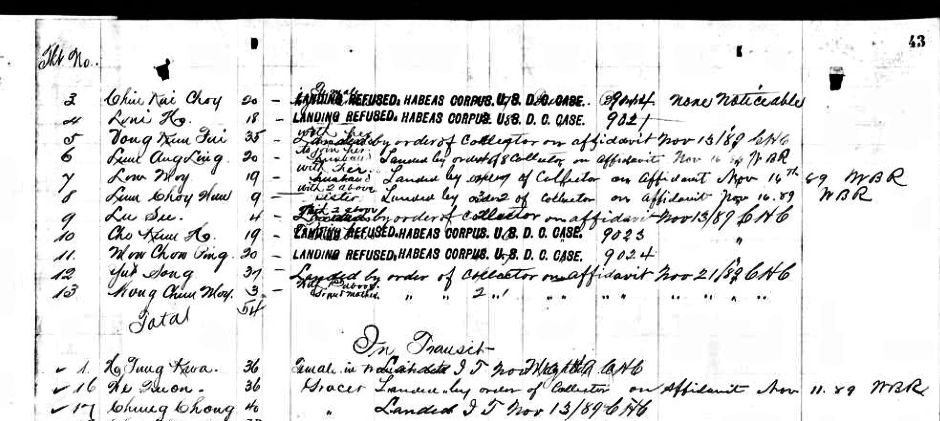 43
Tkt No.
3 Chin Kai Choy 20 - LANDING REFUSED. HABEAS CORPUS. U. S. D. C. CASE. 9044 none noticeable
4 Loui Ho. 18 - LANDING REFUSED. HABEAS CORPUS. U. S. D. C. CASE. 9021
with her
5 Vong Kum Fui 35 - Landed by order of Collector on affidavit Nov 13/89 C H C
to join her
6 Lum Aug Ling. 20 - husband Landed by order of Collector on Affidavit Nov 16 89 W B R
with her
7 Low Moy 19 - husband Landed by order of Collector on Affidavit Nov 16th 89 W B R
with 2 above
8 Lum Choy 9 - sister. Landed by order of Collector on Affidavit Nov 16. 89 W B R
9 Lu Su. 4 - Landed by order of Collector on affidavit Nov 13/89 C H C
10 Cho Kum Ho. 19 - LANDING REFUSED. HABEAS CORPUS. U. S. D. C. CASE. 9023 "
11. Mow Chom Ping. 20 - LANDING REFUSED. HABEAS CORPUS. U. S. D. C. CASE. 9024 "
12 Yuk Song 37 - Landed by order of Collector on affidavit Nov 21/89 C H C
13 Wong Chun Moy. 3 - With above mother. " " " " " " " " "
Total 54
In Transit
✓ 1. Ho Tung Kwa. 36 Landed I T Nov C H C
✓ 16 He Quon. 36 Grocer Landed by order of Collector on Affidavit Nov 11. 89 W B R
✓ 17 Chung Chong 40 " Landed I T Nov 13/89 C H C